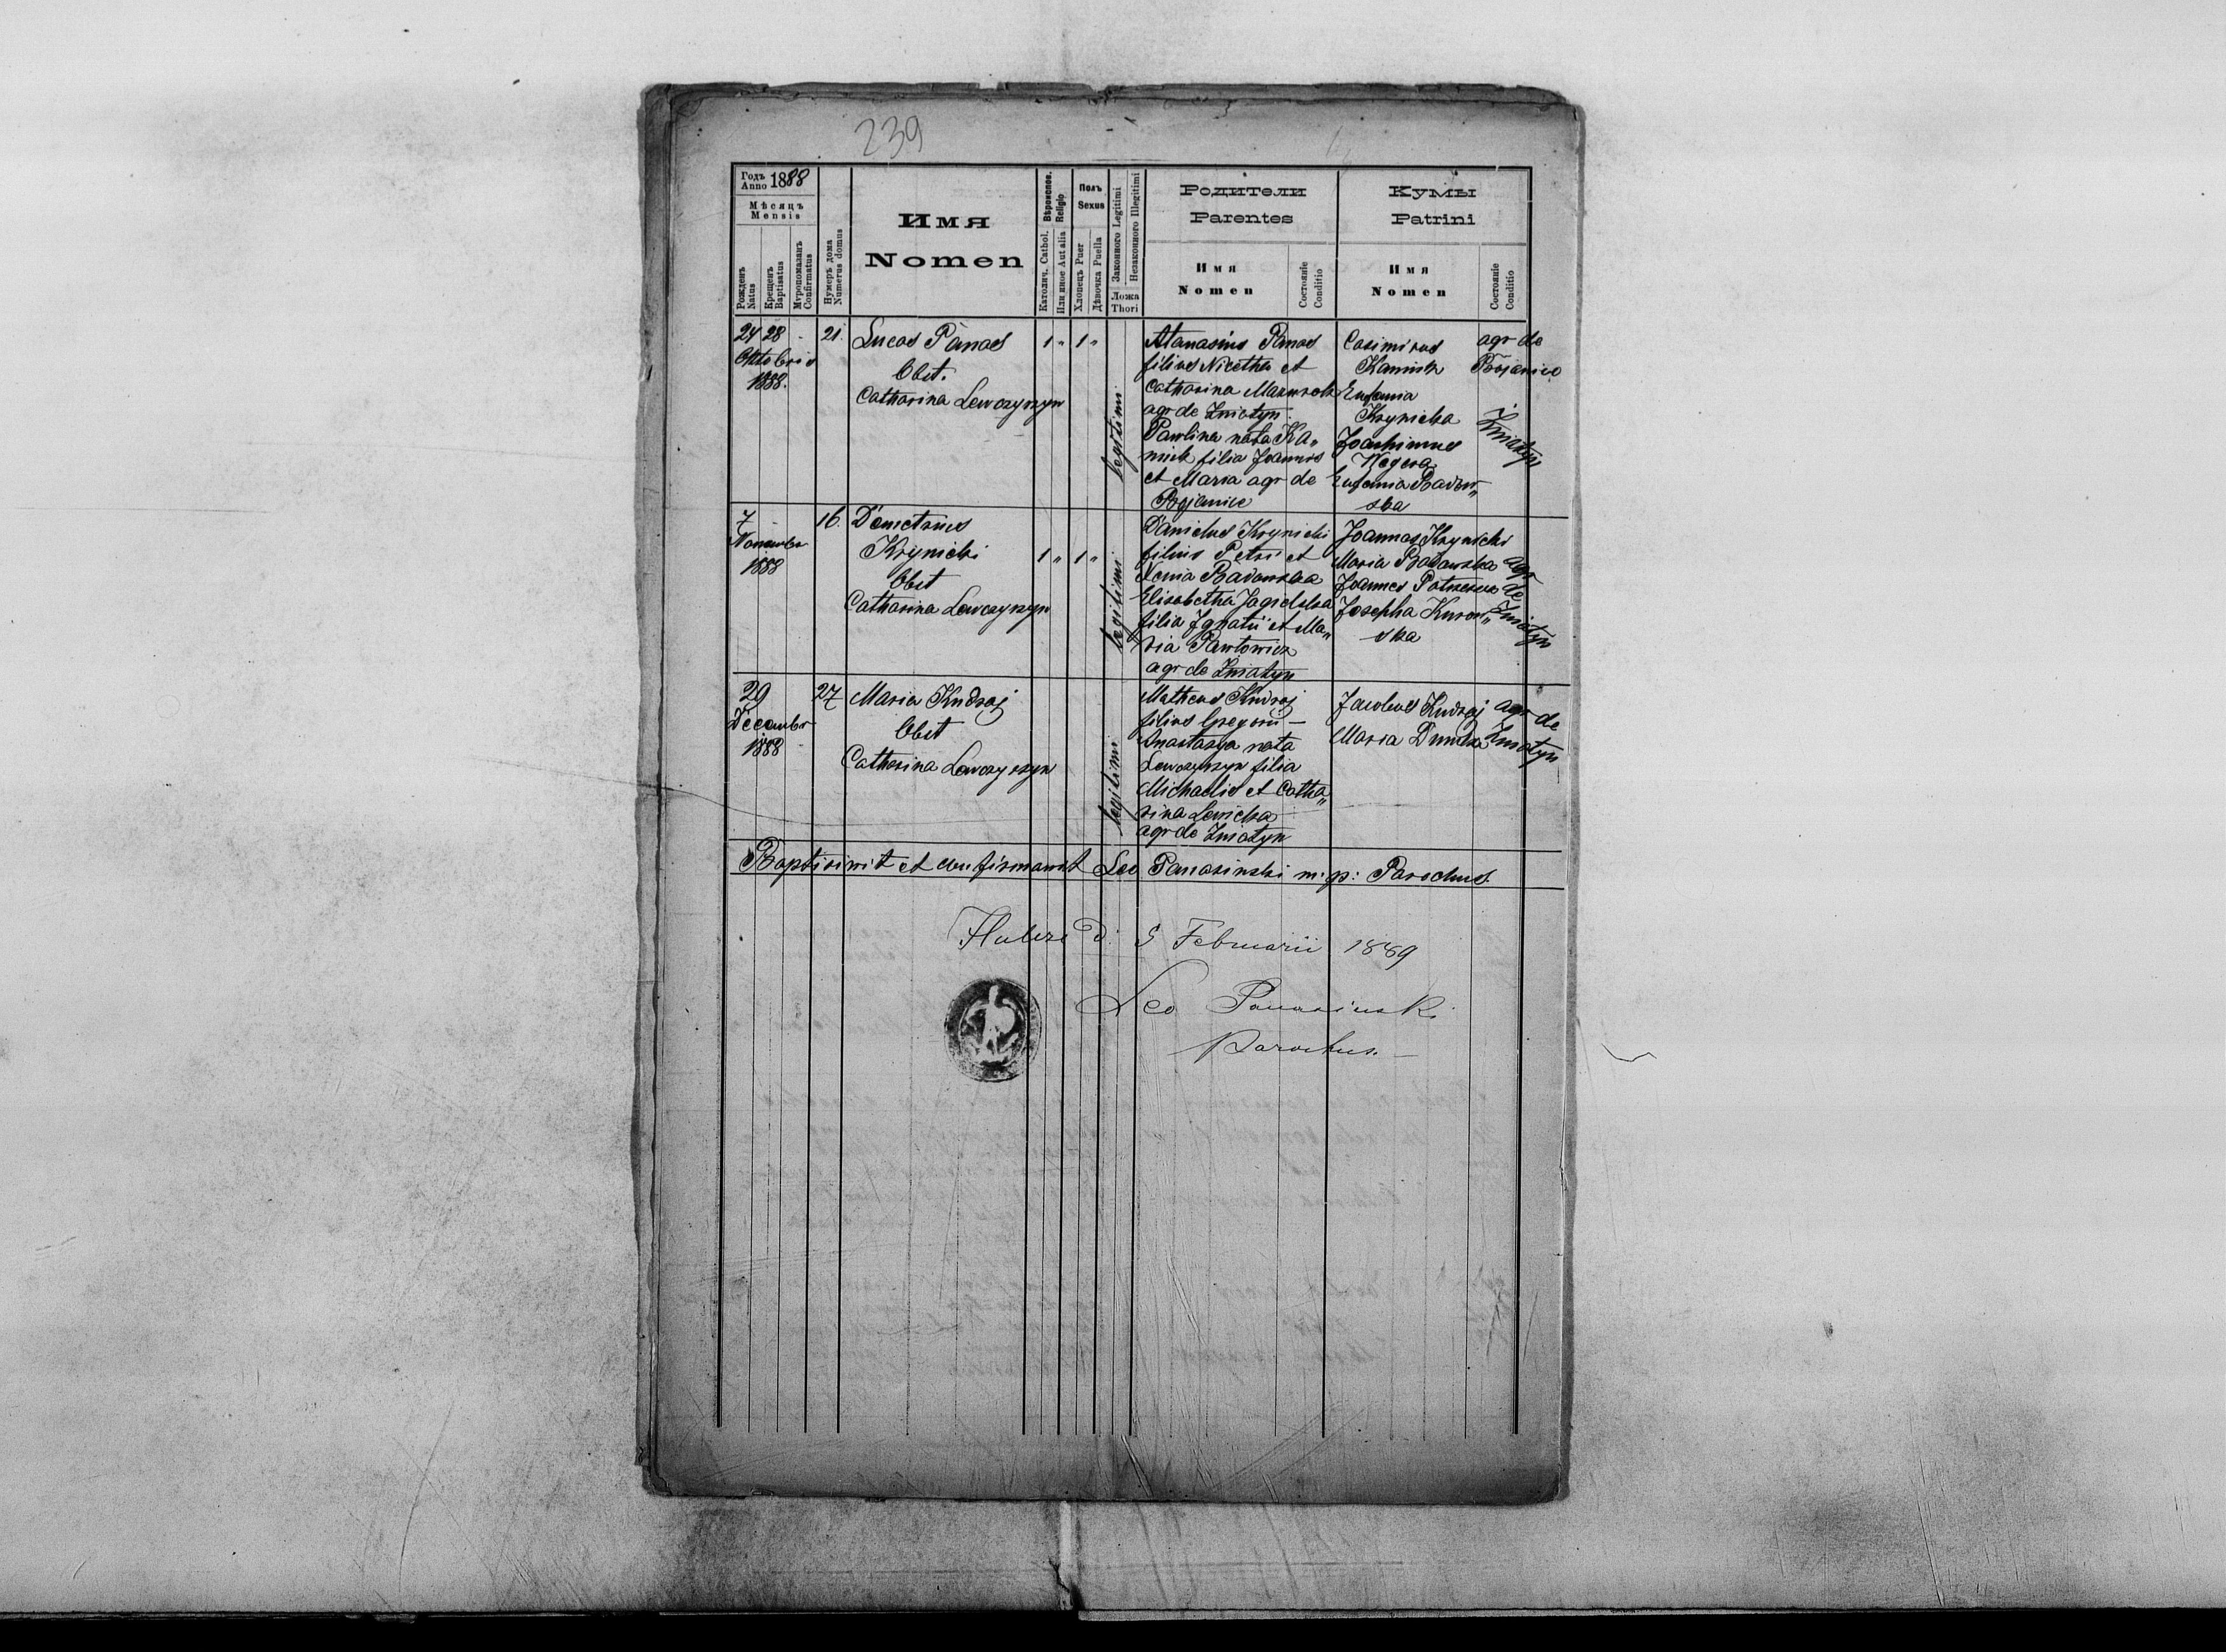 239
Годъ
Anno 1888
Мѣсяцъ
Mensis
Рожденъ
Natus
Крещенъ
Baptisatus
Мvропомазанъ
Confirmatus
Нумеръ дома
Numerus domus
Имя
Nomen
Вѣроисков.
Religio
Католич. Cathol.
Или иное Aut alia
Полъ
Sexus
Хлопецъ Puer
Дѣвочка Puella
Законного Legitimi
Незаконного Illegitimi
Ложа
Thori
Родители
Parentes
Имя
Nomen
Состояніе
Conditio
Кумы
Patrini
Имя
Nomen
Состояніе
Conditio
24 28
Oktobris
1888.
21.
Lucas Panas
Obst.
Catharina Lewczyszyn
1 " 1 "
legitimi
Atanasius Panas
filius Nicetha et
Catharina Mazurok
agr de Zniatyn
Paulina nata Ka„
niuk filia Joannis
et Maria agr de
Bojanice
Casimirus
Kaniuk
Eufemia
Krynicka
Joachimus
Eufemia Badow„
ska
agr de
Bojanice
Zniatyn
7
Novembr
1888
16.
Demetrius
Krynicki
Obst
Catharina Lewczyszyn
1 " 1 "
legitimi
Danielus Krynicki
filius Petri et
Xenia Badowska
Elisabetha Jagielska
filia Ignatii et Ma„
ria Pawłowicz
agr de Zniatyn
Joannes Krynicki
Maria Badowska
Joannes
Josepha Kurow„
ska
agr
de
Zniatyn
29
Decembr
1888
27
Maria Kudraj
Obst
Catharina Lewczyszyn
legitimi
Matheus Kudraj
filius Gregorii —
Anastasya nata
Lewczyszyn filia
Michaelis et Catha„
rina Lewicka
agr de Zniatyn
Jacobus Kudraj
Maria
agr de
Zniatyn
Baptisavit et confirmavit Leo Panasinski m.p: Parochus.
d. 5 Februarii 1889
Leo Panasinski
Parochus. —